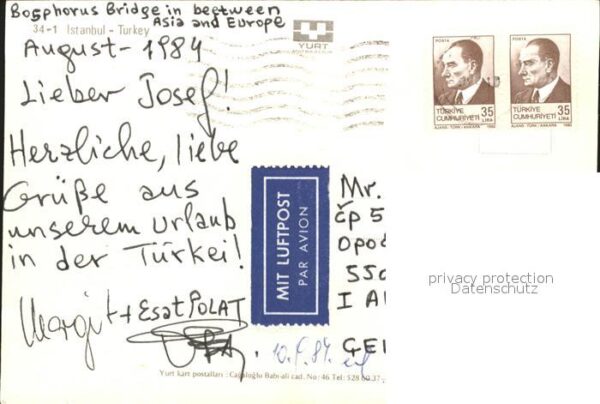 Bosphorus Bridge in beetween
Asia and Europe
34-1 Istanbul - Turkey
YURT
August - 1984
Lieber Josef!
Herzliche, liebe
Grüße aus
unserem Urlaub
in der Türkei!
Margit + Esat POLAT
POSTA
TÜRKİYE
CUMHURİYETİ
35
LİRA
AJANS-TÜRK/ANKARA 1982
POSTA
TÜRKİYE
CUMHURİYETİ
35
LİRA
AJANS-TÜRK/ANKARA 1982
MIT LUFTPOST
PAR AVION
Mr.
čp 5
Opoč
I A
privacy protection
Datenschutz
Yurt kart postalları : Cağaloğlu Babı-ali cad. No: 46 Tel: 528 60 37